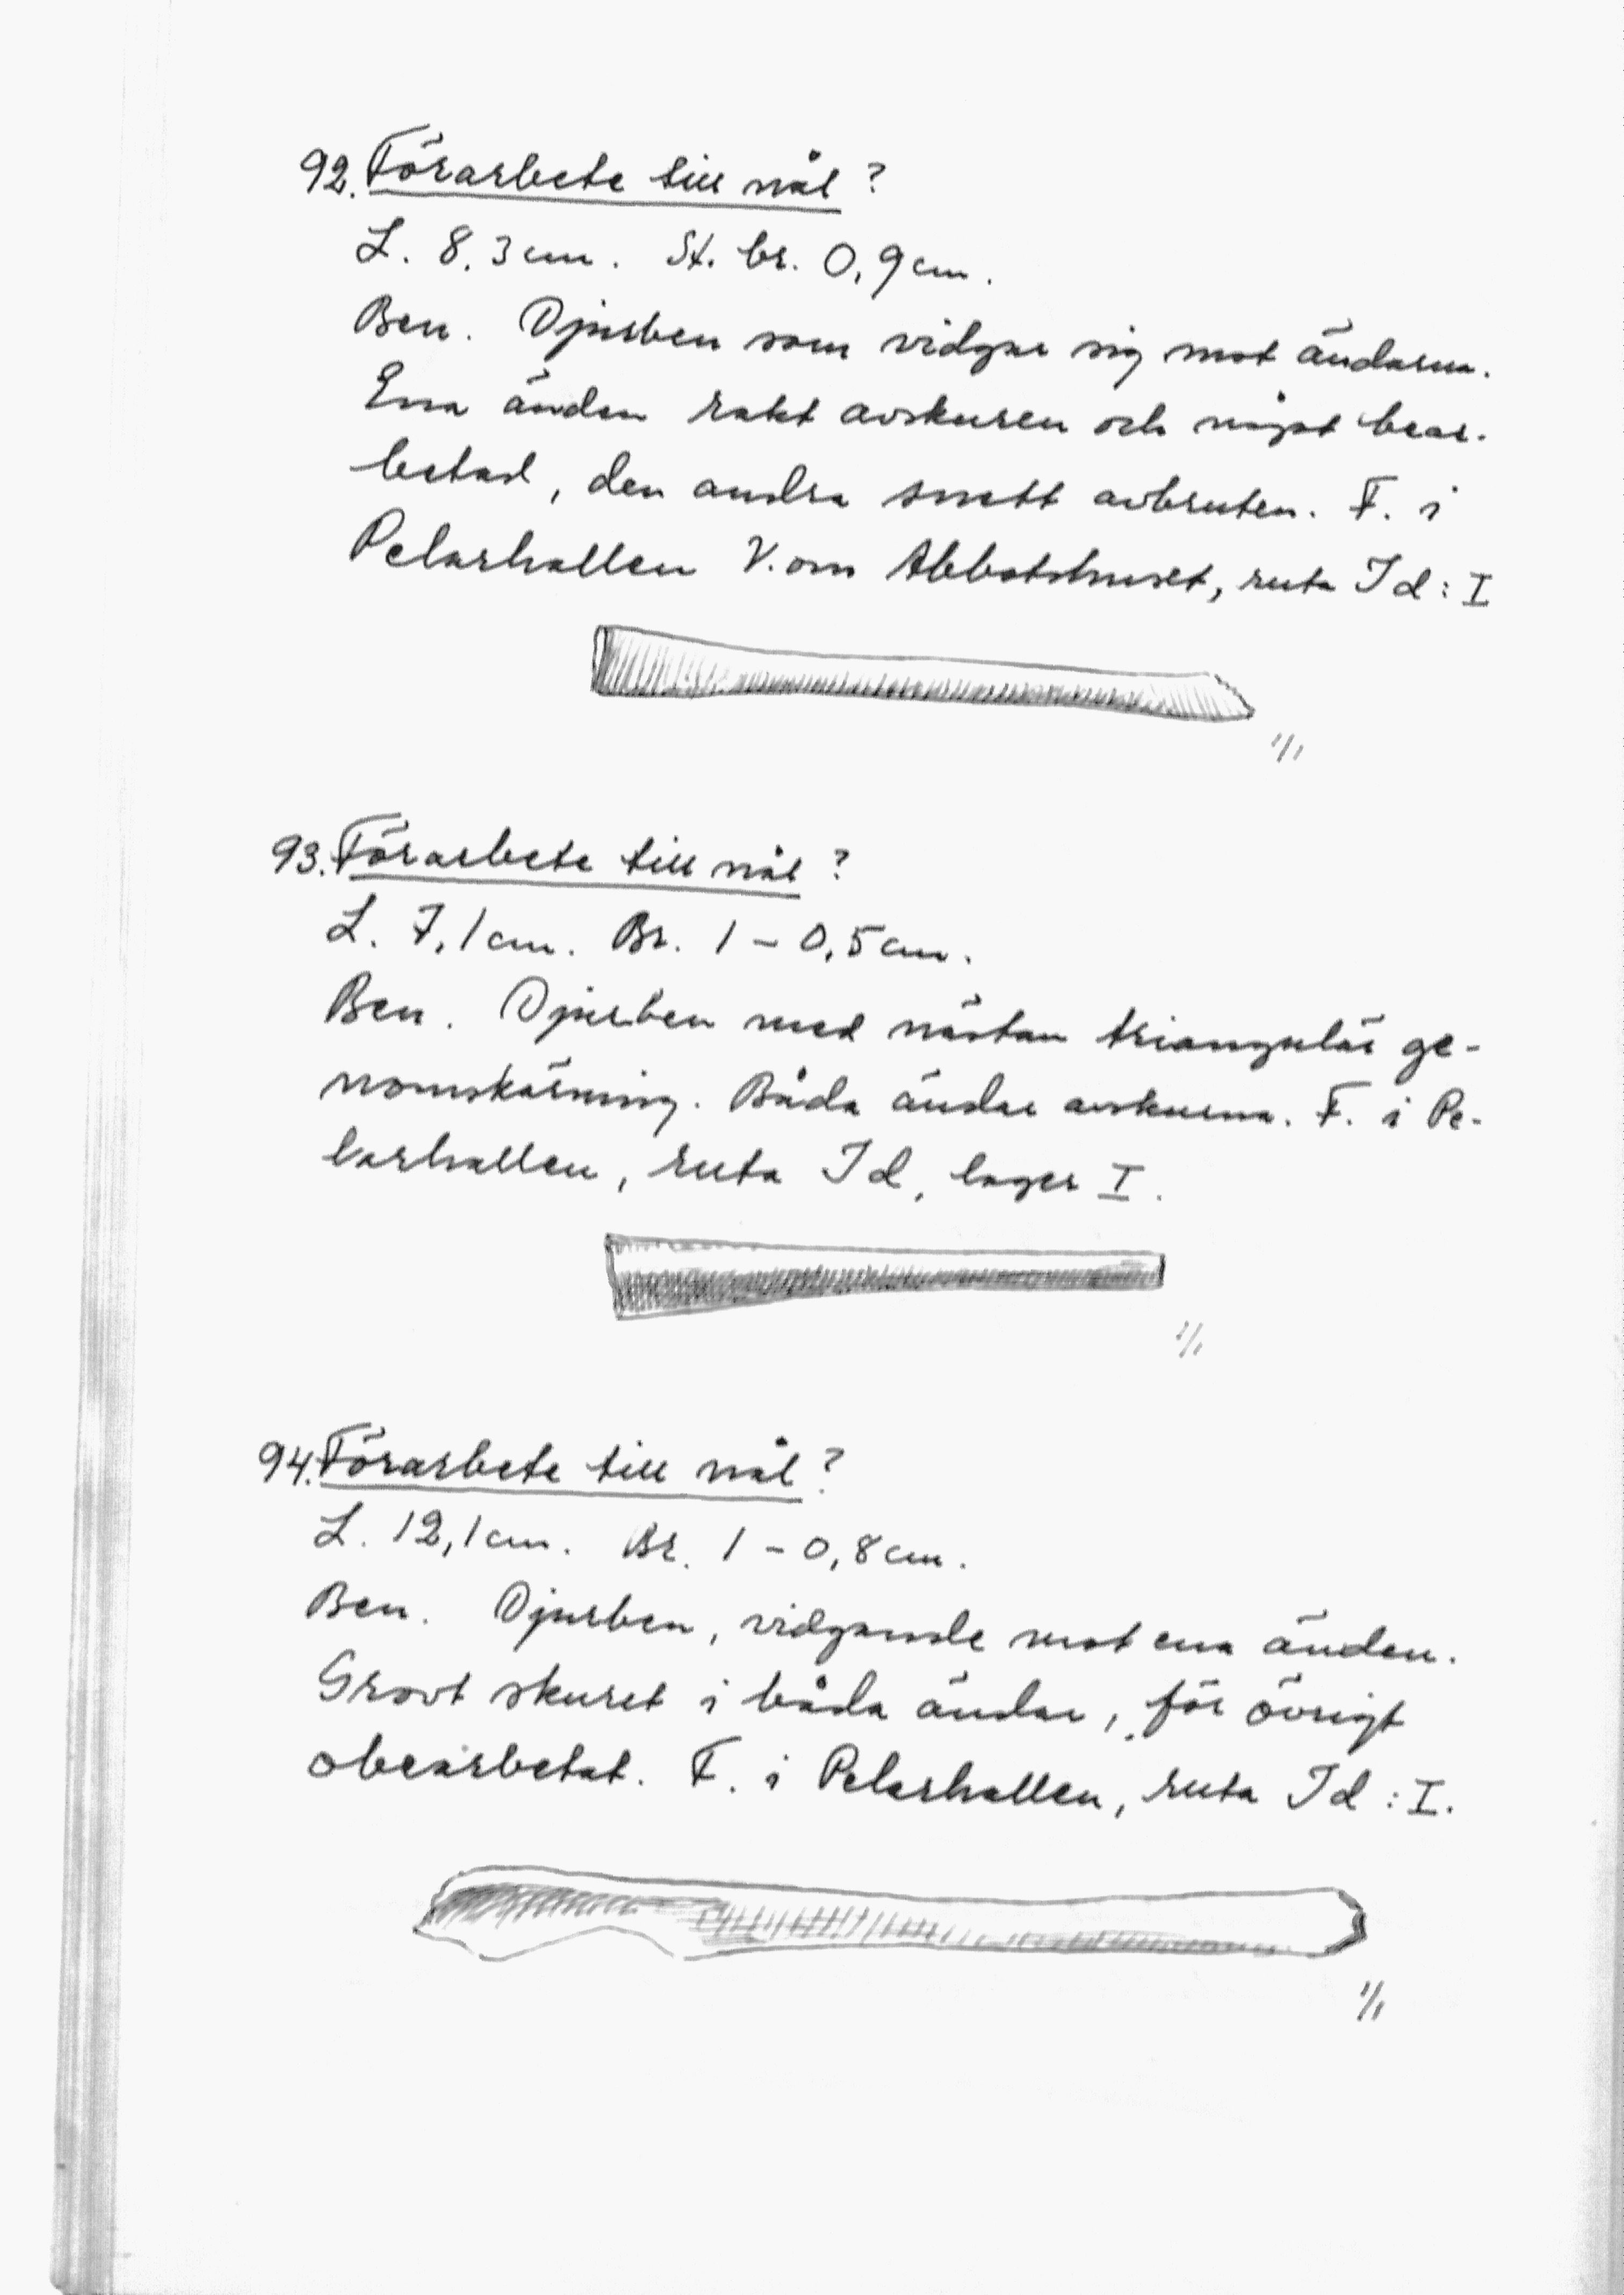 92. Förarbete till nål?
L. 8,3 cm. St. br. 0,9 cm.
Ben. Djurben som vidgar sig mot ändarna.
Ena änden rakt avskuren och något bear-
betad, den andra snett avbruten. F. i
Pelarhallen V. om Abbotshuset, ruta Id: I
1/1
93. Förarbete till nål?
L. 7,1 cm. Br. 1 - 0,5 cm.
Ben. Djurben med nästan triangulär ge-
nomskärning. Båda ändar avskurna. F. i Pe-
larhallen, ruta Id, lager I.
1/1
94. Förarbete till nål?
L. 12,1 cm. Br. 1 - 0,8 cm.
Ben. Djurben, vidgande mot ena änden.
Grovt skuret i båda ändar, för övrigt
obearbetat. F. i Pelarhallen, ruta Id: I.
1/1